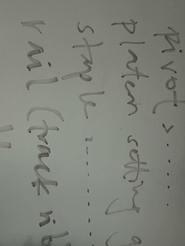 pivot > .....
platern setting
staple = .......
rail (track is